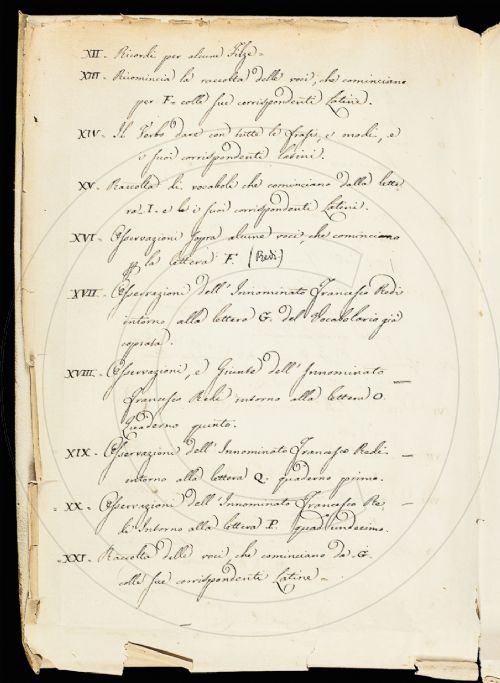 XII - Ricordi per alcune Filze -
XIII - Ricomincia la raccolta delle voci, che cominciano
per F - colle sue corrispondenti Latine.
XIV - Il Verbo dare con tutte le frasi, e modi, e
i suoi corrispondenti latini.
XV - Raccolta di vocaboli che cominciano dalla lette
ra I - e i suoi corrispondenti Latini.
XVI - Osservazioni sopra alcune voci, che cominciano
la lettera F. (Redi)
XVII - Osservazioni dell' Innominato Francesco Redi
intorno alla lettera G. del Vocabolario già
copiata.
XVIII - Osservazioni, e Giunte dell' Innominato
Francesco Redi intorno alla lettera O.
Quaderno quinto.
XIX - Osservazioni dell' Innominato Francesco Redi
intorno alla lettera Q. quaderno primo.
XX - Osservazioni dell' Innominato Francesco Re
di Intorno alla lettera P. quad. undecimo.
XXI - Raccolta delle voci, che cominciano da G.
colle sue corrispondenti Latine -